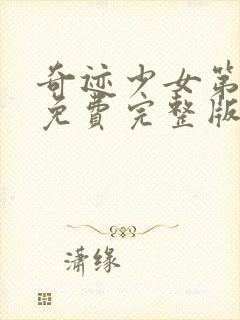 奇迹少女第
免费完整版
潇缘